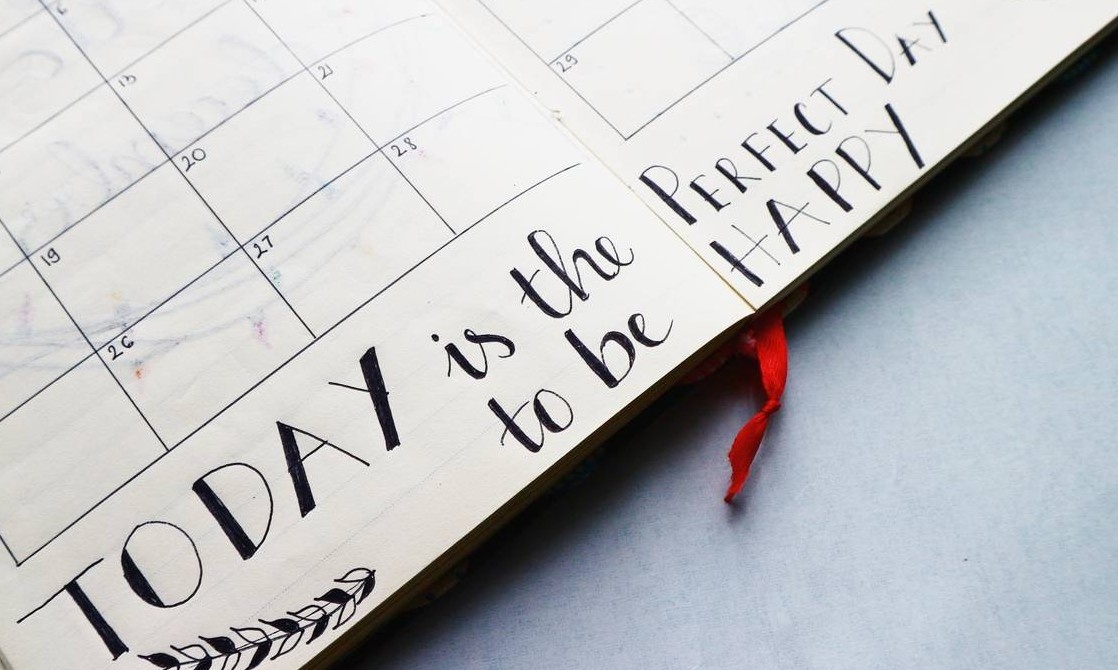 6
13
20
27
19
26
21
28
29
TODAY is the PERFECT DAY
to be HAPPY